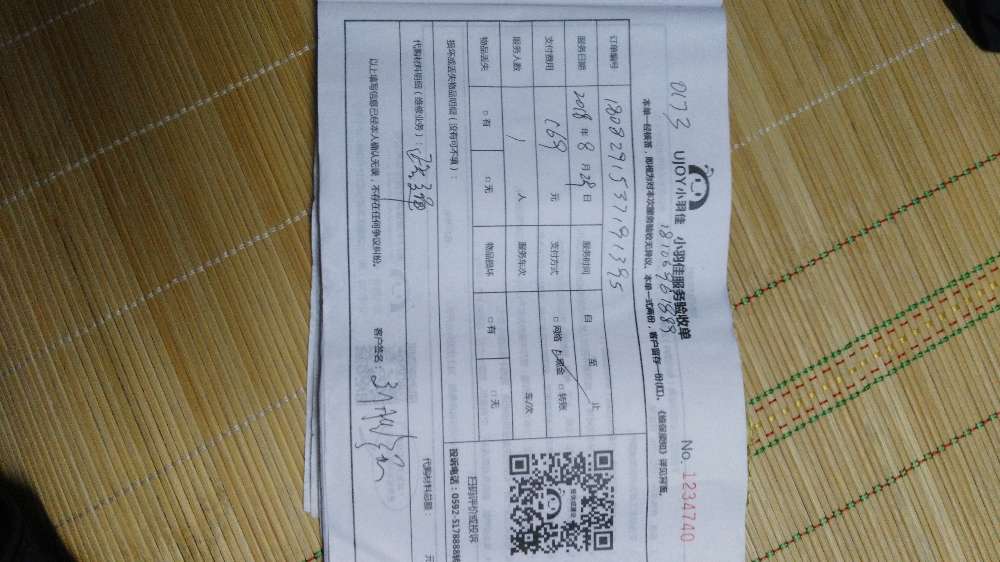 0173 UJOY小羽佳 小羽佳服务验收单 No. 1234740
18106961889
本单一经核签，即视为对本次服务验收无异议。本单一式两份，客户留存一份(红)。《维保须知》详见背面。
订单编号 1808291537191395
服务日期 2018 年 8 月 29 日 服务时间 自 至 止
支付费用 169 元 支付方式 □网络 □现金 □转账
服务人数 1 人 服务车次 车/次
物品丢失 □有 □无 物品损坏 □有 □无
扫码评价或投诉
投诉电话：0592-5178888转
损坏或丢失物品明细（没有可不填）：
代购材料明细（维修业务）：
代购材料总额： 元
以上填写信息已经本人确认无误，不存在任何争议纠纷。 客户签名：